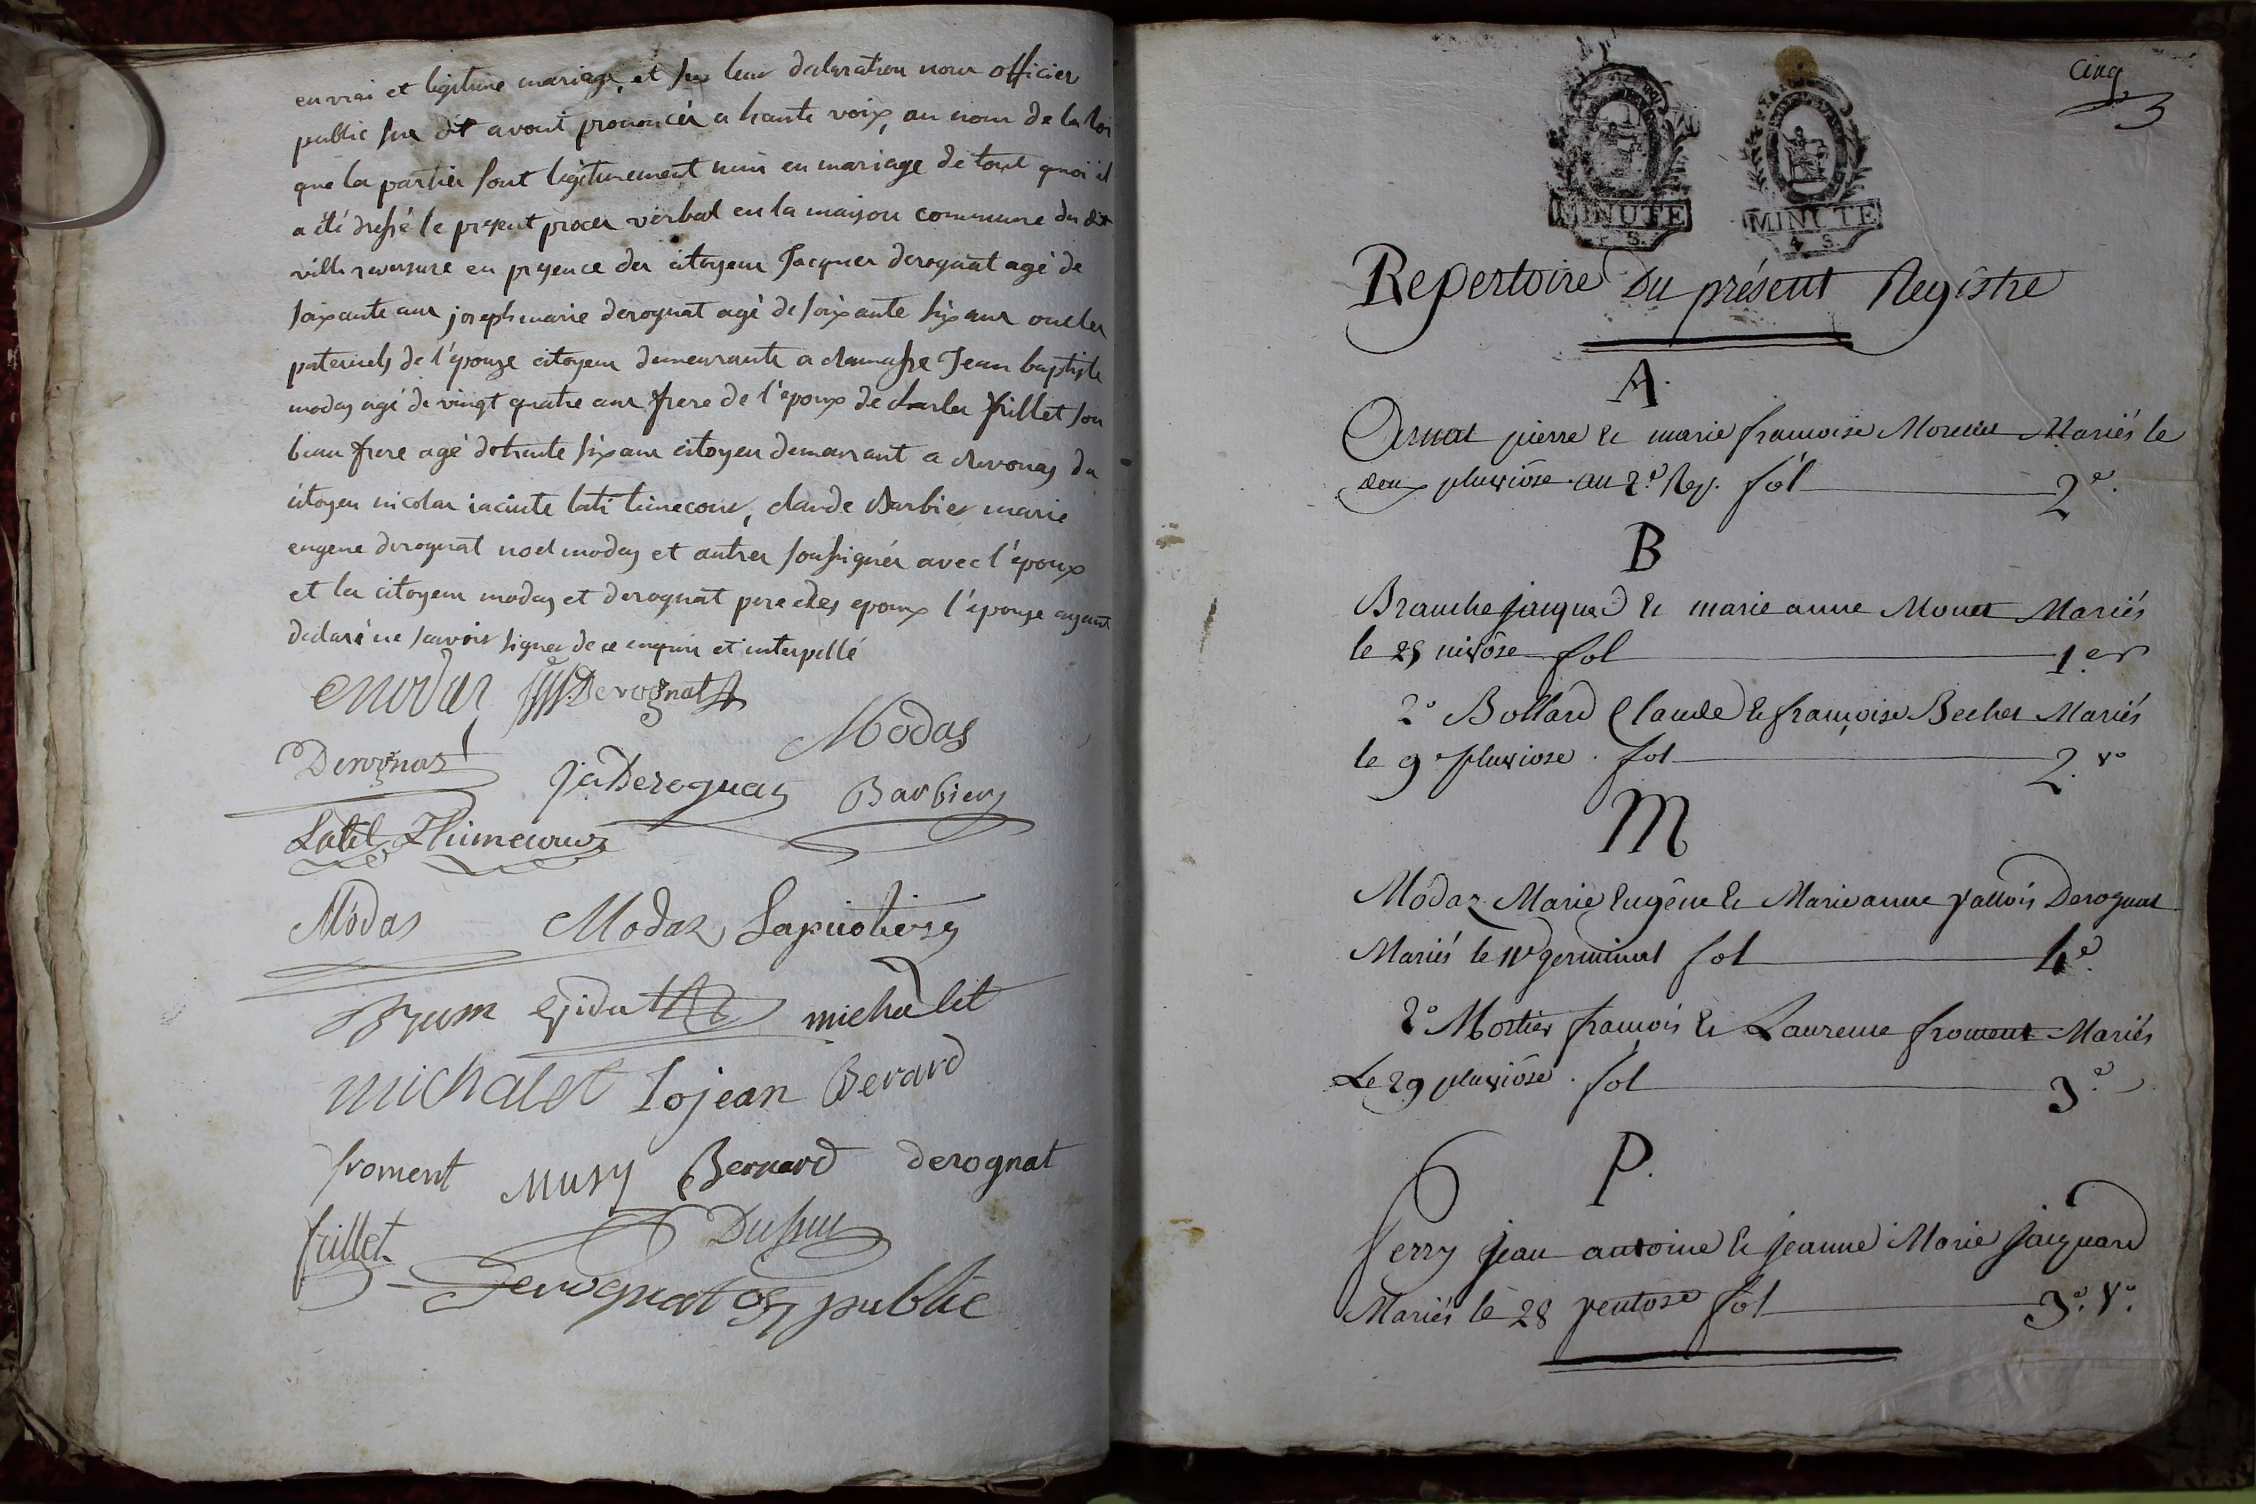 en vrai et legitime mariage, et sur leur declaration nous officier
public sus dit avont prononcéz a haute voix, au nom de la loi
que les parties sont legitimement unis en mariage de tout quoi il
a été dressé le present procez verbal en la maison commune du dit
ville reversure en presence des citoyens Jacques derognat agé de
soixante ans joseph marie derognat agé de soixante six ans oncles
paternels de l'épouze citoyens demeurants a Jean baptiste
modas agé de vingt quatre ans frere de l'époux de charles frillet son
beau frere agé de trente six ans citoyen demeurant a chevonas du
citoyen nicolas iacinte latil timecour, claude Barbier marie
eugene derognat noel modas et autres soussignés avec l'époux
et les citoyens modas et derognat peres des epoux l'épouze ayant
declaré ne savoir signer de ce enquise et interpellé
Modas Derognat
Modas
Derognat jaDerognat Barbiery
Latil Thimecour
Modas Modaz
michalet
michalet Lojean Berard
froment Musy Bernard derognat
frillet Dufour
Derognat off public
Cinq
5
MINUTE MINUTE
4 S. 4 S.
Repertoire du présent Registre
A.
Arnat pierre & marie francoise Moreau Mariés le
deux pluviôse an 2.e Rep. fol 2e.
B
Branche jacques & marie anne Monet Mariés
le 25 nivôse fol 1.er
2° Bollard Claude & françoise Becher Mariés
le 9 pluviose. fol 2. v°
M
Modaz Marie Eugêne & Marie anne vallois Derognat
Mariés le 11 germinal fol 4e.
2° Mortier francois & Laurence froment Mariés
Le 29 pluviôse. fol 3e
P.
Perry jean antoine & jeanne Marie jaiquard
Mariés le 28 ventose fol 3e. v°.